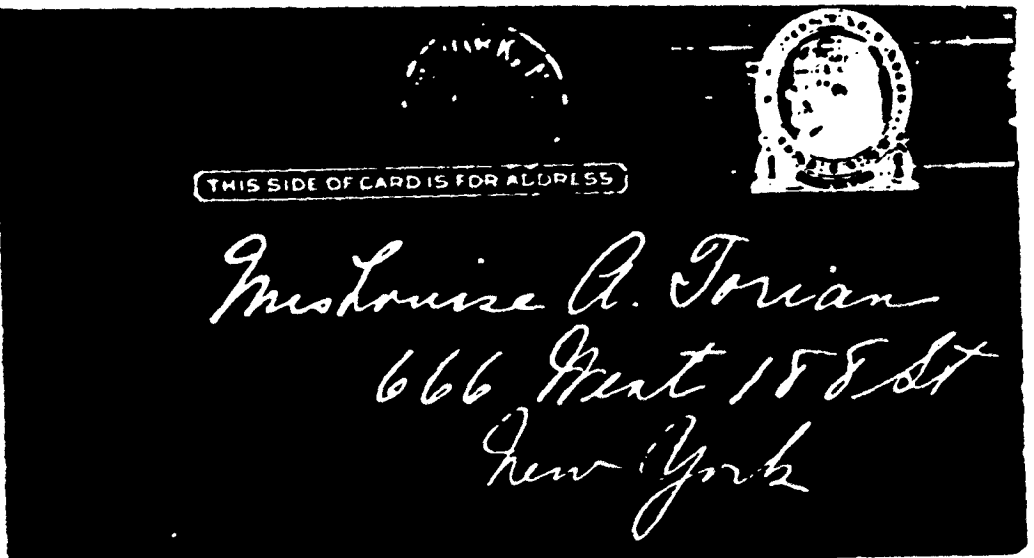 THIS SIDE OF CARD IS FOR ADDRESS
Mrs Louise A. Torian
666 West 188 St
New York